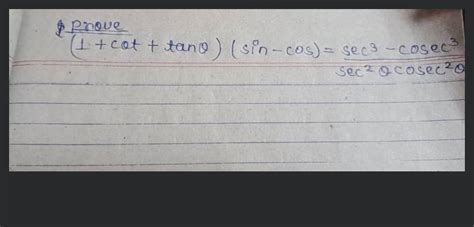 prove
(1 + cot + tanθ) (sin - cos) = sec³ - cosec³
sec² θ cosec² θ